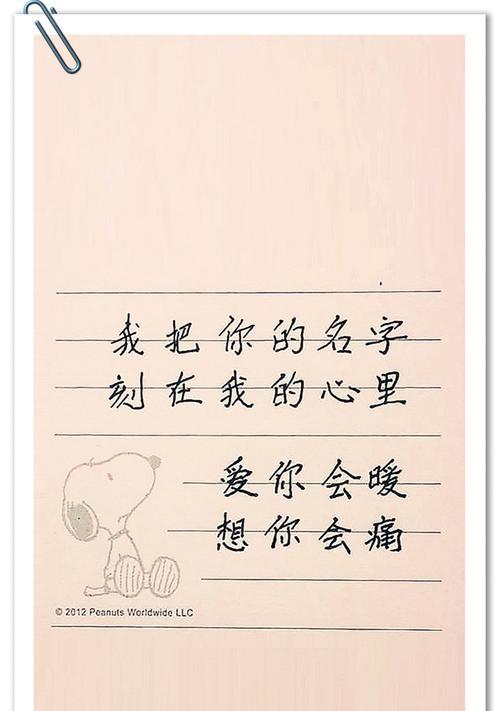 我把你的名字
刻在我的心里
爱你会暖
想你会痛
© 2012 Peanuts Worldwide LLC